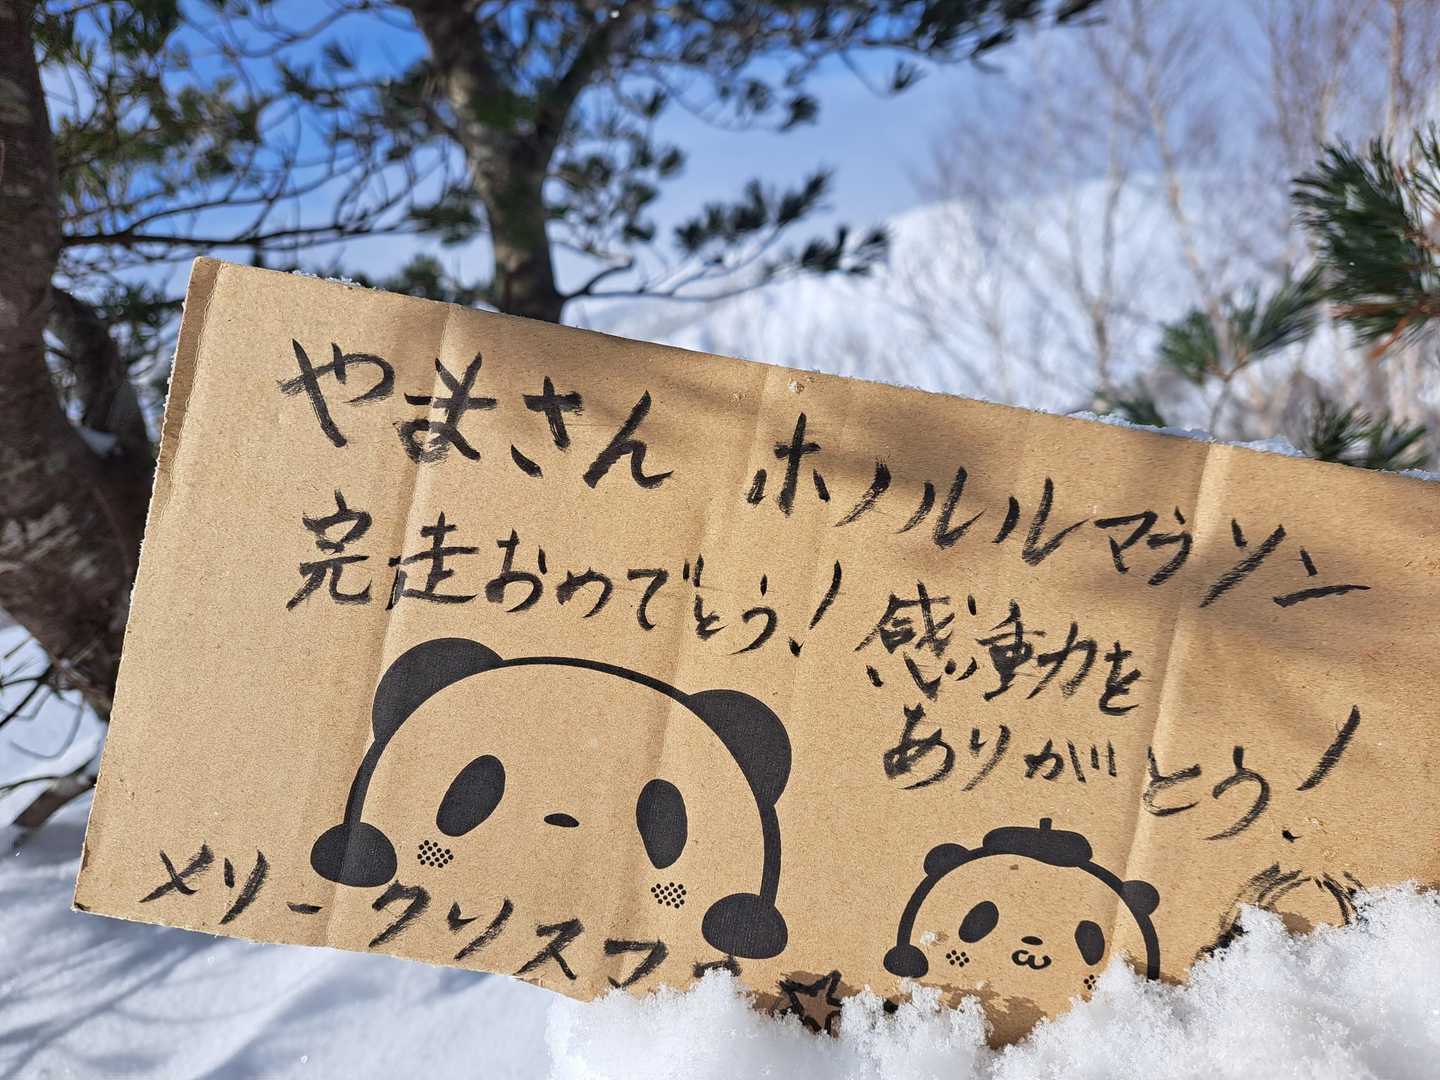 やまさん ホノルルマラソン
完走おめでとう! 感動を
ありがとう!
メリークリスマス